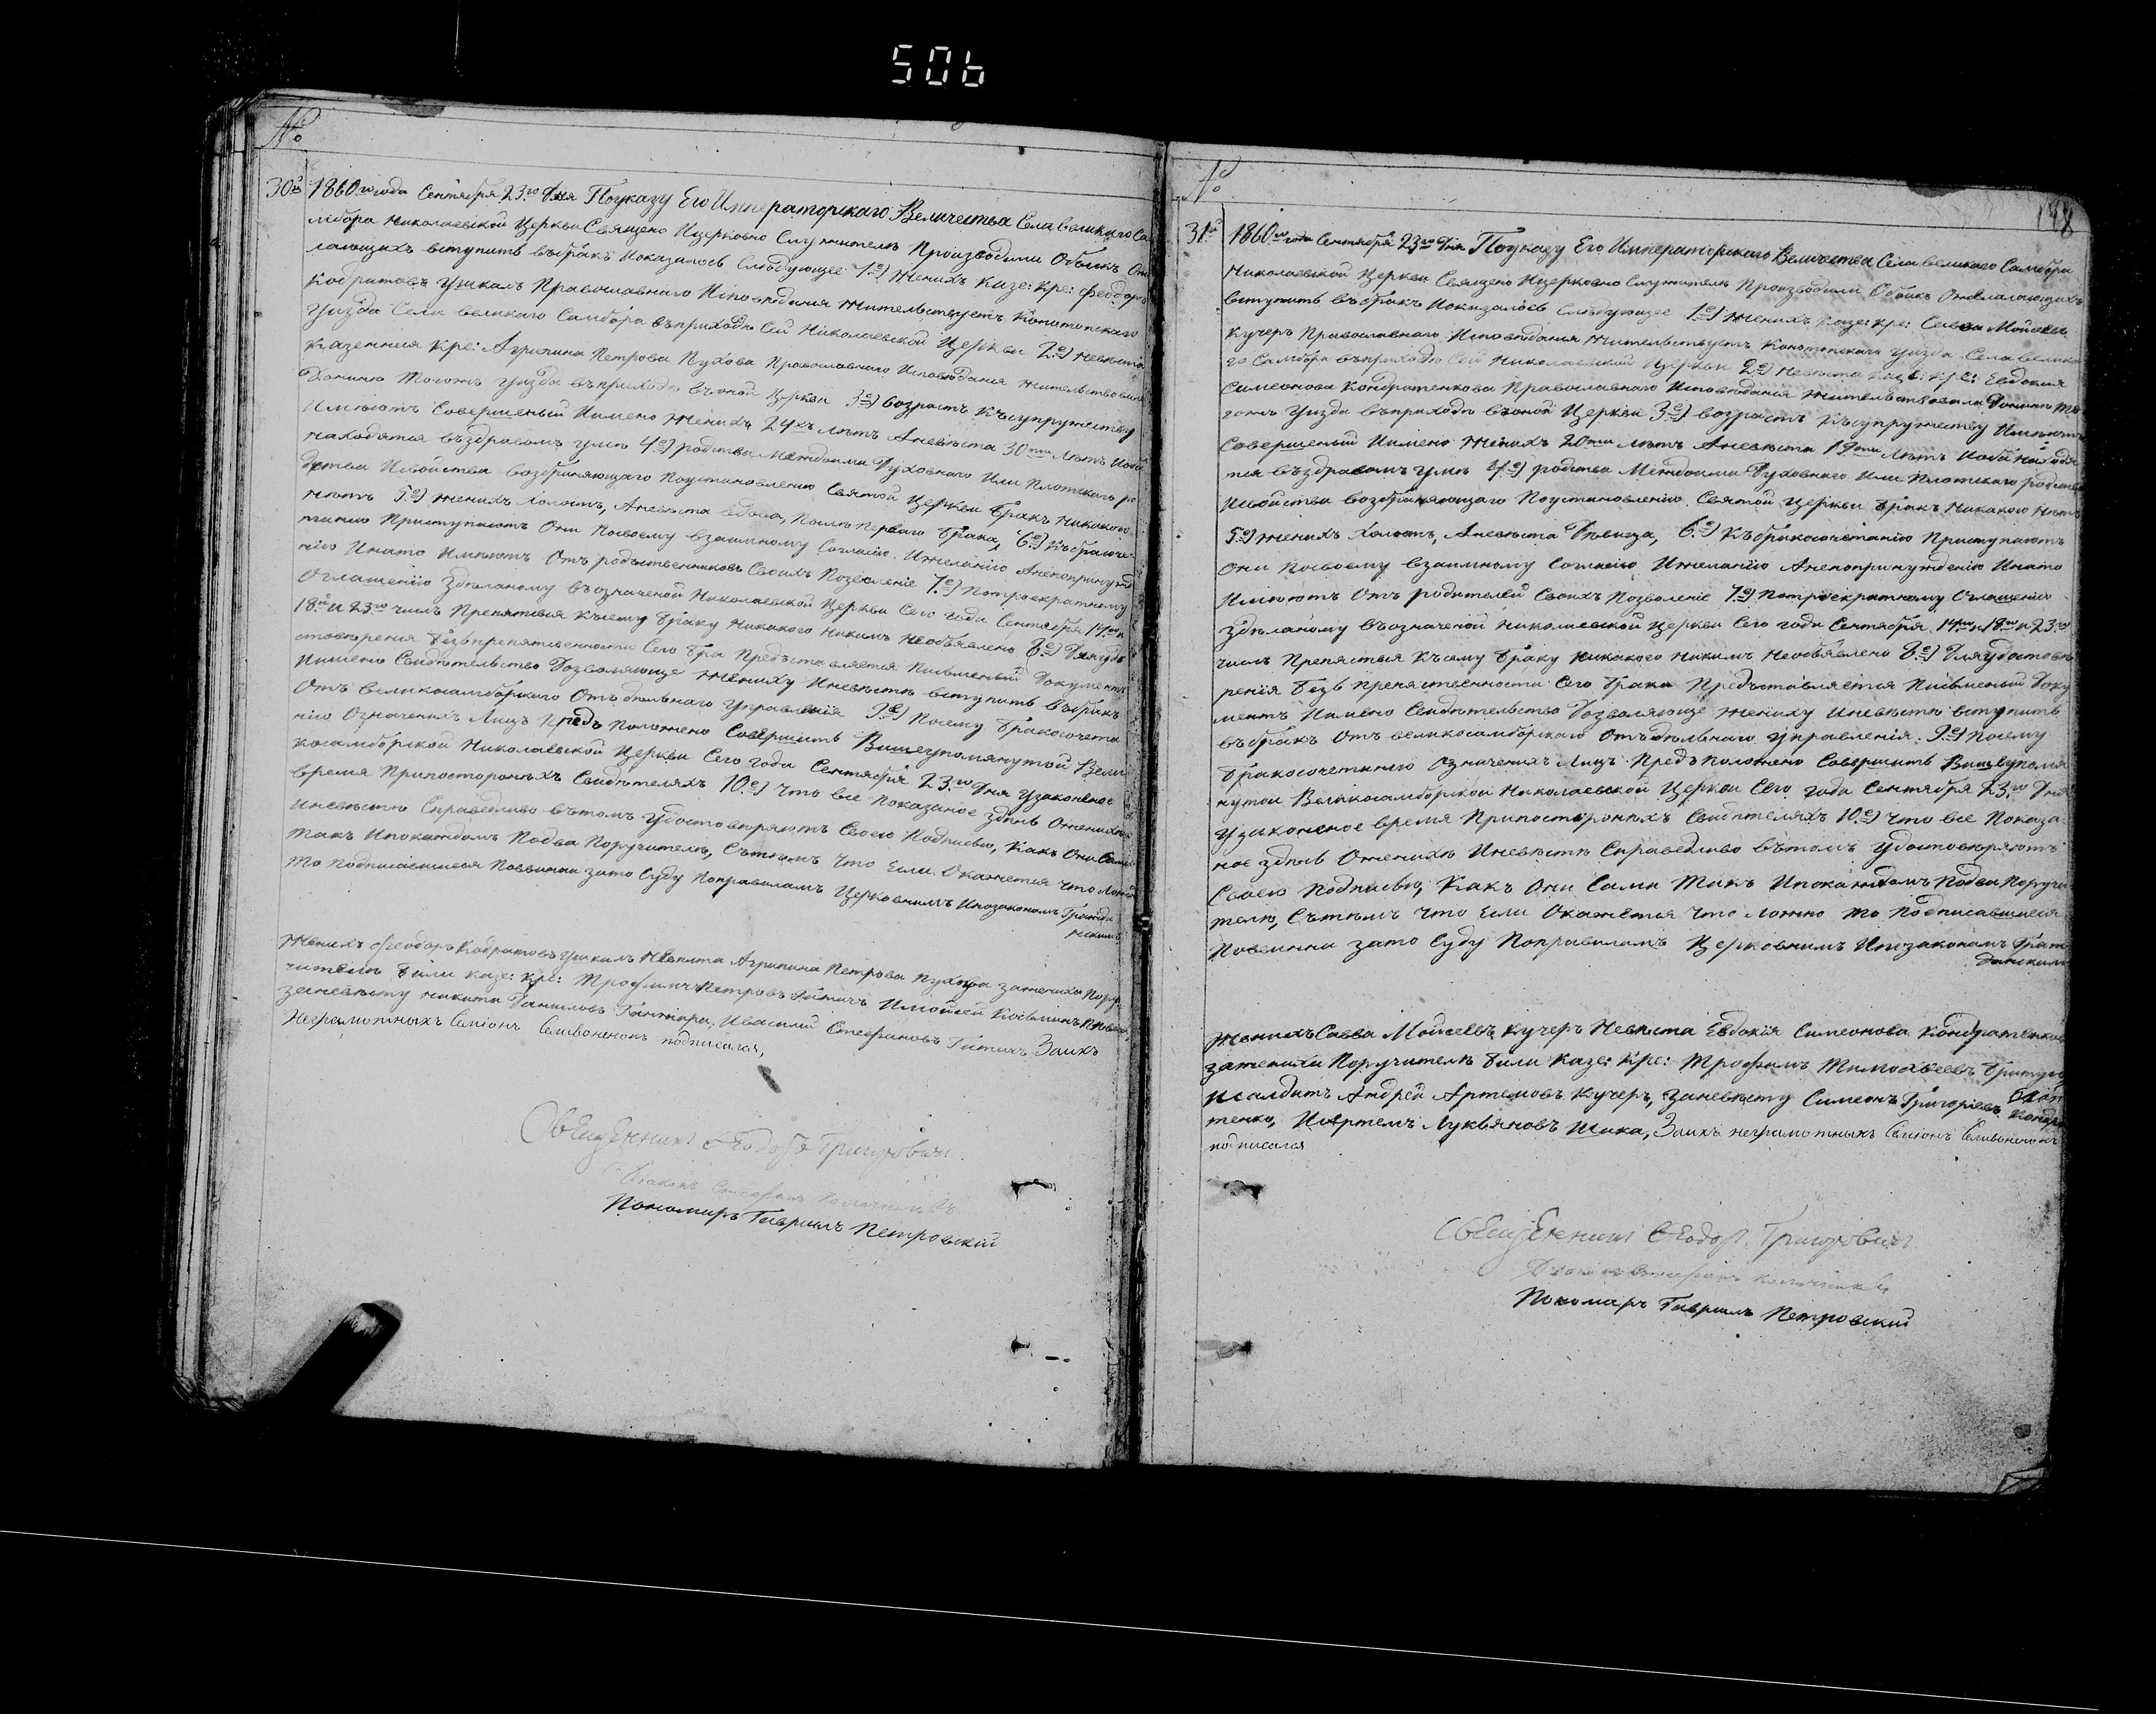 506
№
30й 1860го года Сентября 23го дня Поуказу Его Императорскаго Величества Села великаго Са
мбора Николаевской Церкви Священо Ицерковно Служителѣ Производили Обыскъ
лающихъ вступить въбракъ Иоказалось Слѣдующее 1е) Женихъ Казе: кре: Феодоръ
Православнаго Исповѣданія Жительствуетъ Конотопскаго
Уѣзда Села великаго Самбора въприходѣ Сей Николаевской Церкви 2е) Невѣста
Казенная Кре: Агрипина Петрова Пухова Православнаго Исповѣданія Жительствовала
Донинѣ Тогожъ уѣзда въприходѣ въоной Церкви 3е) возрастъ Къ супружеству
Имѣютъ Совершеный Иимено Женихъ 24хъ лѣтъ Аневѣста 30ти лѣтъ Иоба
находятся въздравомъ умѣ 4е) родства Междоими Духовнаго Или Плотскаго ро
дства Исвойства возбраняющаго Поустановленію Святой Церкви бракъ Никакого
нѣтъ 5е) Женихъ Холостъ, Аневѣста вдова, Послѣ Перваго брака, 6е) Къ бракоче-
танію Приступаютъ Они Посвоему взаимному Согласію Ижеланію Анепопринужд
нію Инато Имѣютъ Отъ родственниковъ Своихъ Позволеніе 7е) Потроекратному
Оглашенію Здѣланому въозначеной Николаевской Церкви Сего года Сентября 14го
18го и 23го числъ Препятствія Къ сему браку Никакого Никимъ Необъявлено 8е) Дляудо
стовѣренія безъпрепятственности Сего бра Предъставляется Письменый Документъ
Иимено Свидѣтельство Дозволяюще Жениху Иневѣстѣ вступить въбракъ
Отъ великосамборскаго Отъдѣльнаго Управленія 9е) Посему бракосочета
нію Означеныхъ Лицъ Предъ положено Совершить Вишеупомянутой Вели
косамборской Николаевской Церкви Сего года Сентября 23го Дня узаконеное
время Припостороныхъ Свидѣтеляхъ 10е) Что все Показаное здѣсь Оженихѣ
Иневѣстѣ Справедливо въ томъ удостовѣряютъ Своею Подписью, Какъ Они Сами
такъ Ипокаждомъ Подва Поручителѣ, Съ тѣмъ что Если Окажется что Ложно
То Подписавшиеся Повинни зато Суду Поправиламъ Церковнимъ Ипозаконамъ Гражда
нскимъ
Женихъ Феодоръ Невѣста Агрипина Петрова Пухова зажениха Пору
чителѣ били казе: кре: Трофимъ Петровъ Имойсей Косьминъ
заневѣсту Никита Даниловъ Ивасилій Стефановъ Заихъ
Неграмотныхъ Семіонъ Селивоненокъ подписался,
Священникъ Феодоръ Григоровичъ
Діаконъ Стефанъ
Пономаръ Гавриилъ Петровскій
№
188
31й 1860го года Сентября 23го Дня Поуказу Его Императорскаго Величества Села великаго Самбора
Николаевской Церкви Священо Ицерковно Служителѣ Производили Обыскъ Ожелающихъ
вступить въбракъ Иоказалось Слѣдующее 1е) Женихъ Казе: кре: Савва Мойсеевъ
Кучеръ Православнаго Исповѣданія Жительствуетъ Конотопскаго уѣзда Села велика
го Самбора въприходѣ Сей Николаевской Церкви 2е) Невѣста Казе: кре: Евдокія
Симеонова Кондратенкова Православнаго Исповѣданія Жительствовала Донинѣ То
гожъ уѣзда въприходѣ въоной Церкви 3е) возрастъ Късупружеству Имѣютъ
Совершеный Иимено Женихъ 20ти лѣтъ Аневѣста 19ти лѣтъ Иоба Находя
тся въздравомъ умѣ 4е) родства Междоими Духовнаго Или Плотскаго родства
Исвойства возбраняющаго Поустановленію Святой Церкви бракъ Никакого Нѣтъ
5е) Женихъ Холостъ, Аневѣста Дѣвица, 6е) Къбракосочетанію Приступаютъ
Они Посвоему взаимному Согласію Ижеланію Анепопринужденію Инато
Имѣютъ Отъ родителей Своихъ Позволеніе 7е) Потроекратному Оглашенію
Здѣланому въозначеной Николаевской Церкви Сего года Сентября 14го и 18го и 23го
числъ Препятствія Късему браку Никакого Никимъ Необъявлено 8е) Дляудостовѣ
ренія безъ препятственности Сего брака Предъставляется Письменый Доку
ментъ Иимено Свидѣтельство Дозволяюще Жениху Иневѣстѣ вступить
въбракъ Отъ великосамборскаго Отъдѣльнаго управленія. 9е) Посему
бракосочетанію Означеныхъ Лицъ Предъ положено Совершить Вишеупомя
нутой Великосамборской Николаевской Церкви Сего года Сентября 23го Дня
узаконеное время Припостороныхъ Свидѣтеляхъ 10е) Что все Показа-
ное здѣсь Оженихѣ Иневѣстѣ Справедливо въ томъ Удостовѣряютъ
Своею Подписью, Какъ Они Сами Такъ Ипокаждомъ Подва Поручи-
телѣ, Съ тѣмъ что Если Окажется Что Ложно то Подписавшиеся
Повинни зато Суду Поправиламъ Церковнимъ Ипозаконамъ Граж
данскимъ
Женихъ Савва Мойсеевъ Кучеръ Невѣста Евдокія Симеонова Кондратенкова
зажениха Поручителѣ били казе: кре: Трофимъ Тимофеевъ
Исалдатъ Андрей Артемовъ Кучеръ, заневѣсту Симеонъ Григоріевъ Кондра
тенко, Иартемъ Лукьяновъ Шика, Заихъ неграмотныхъ Семіонъ Селивоненокъ
подписался
Священникъ Феодоръ Григоровичъ
Діаконъ Стефанъ
Пономаръ Гавриилъ Петровскій